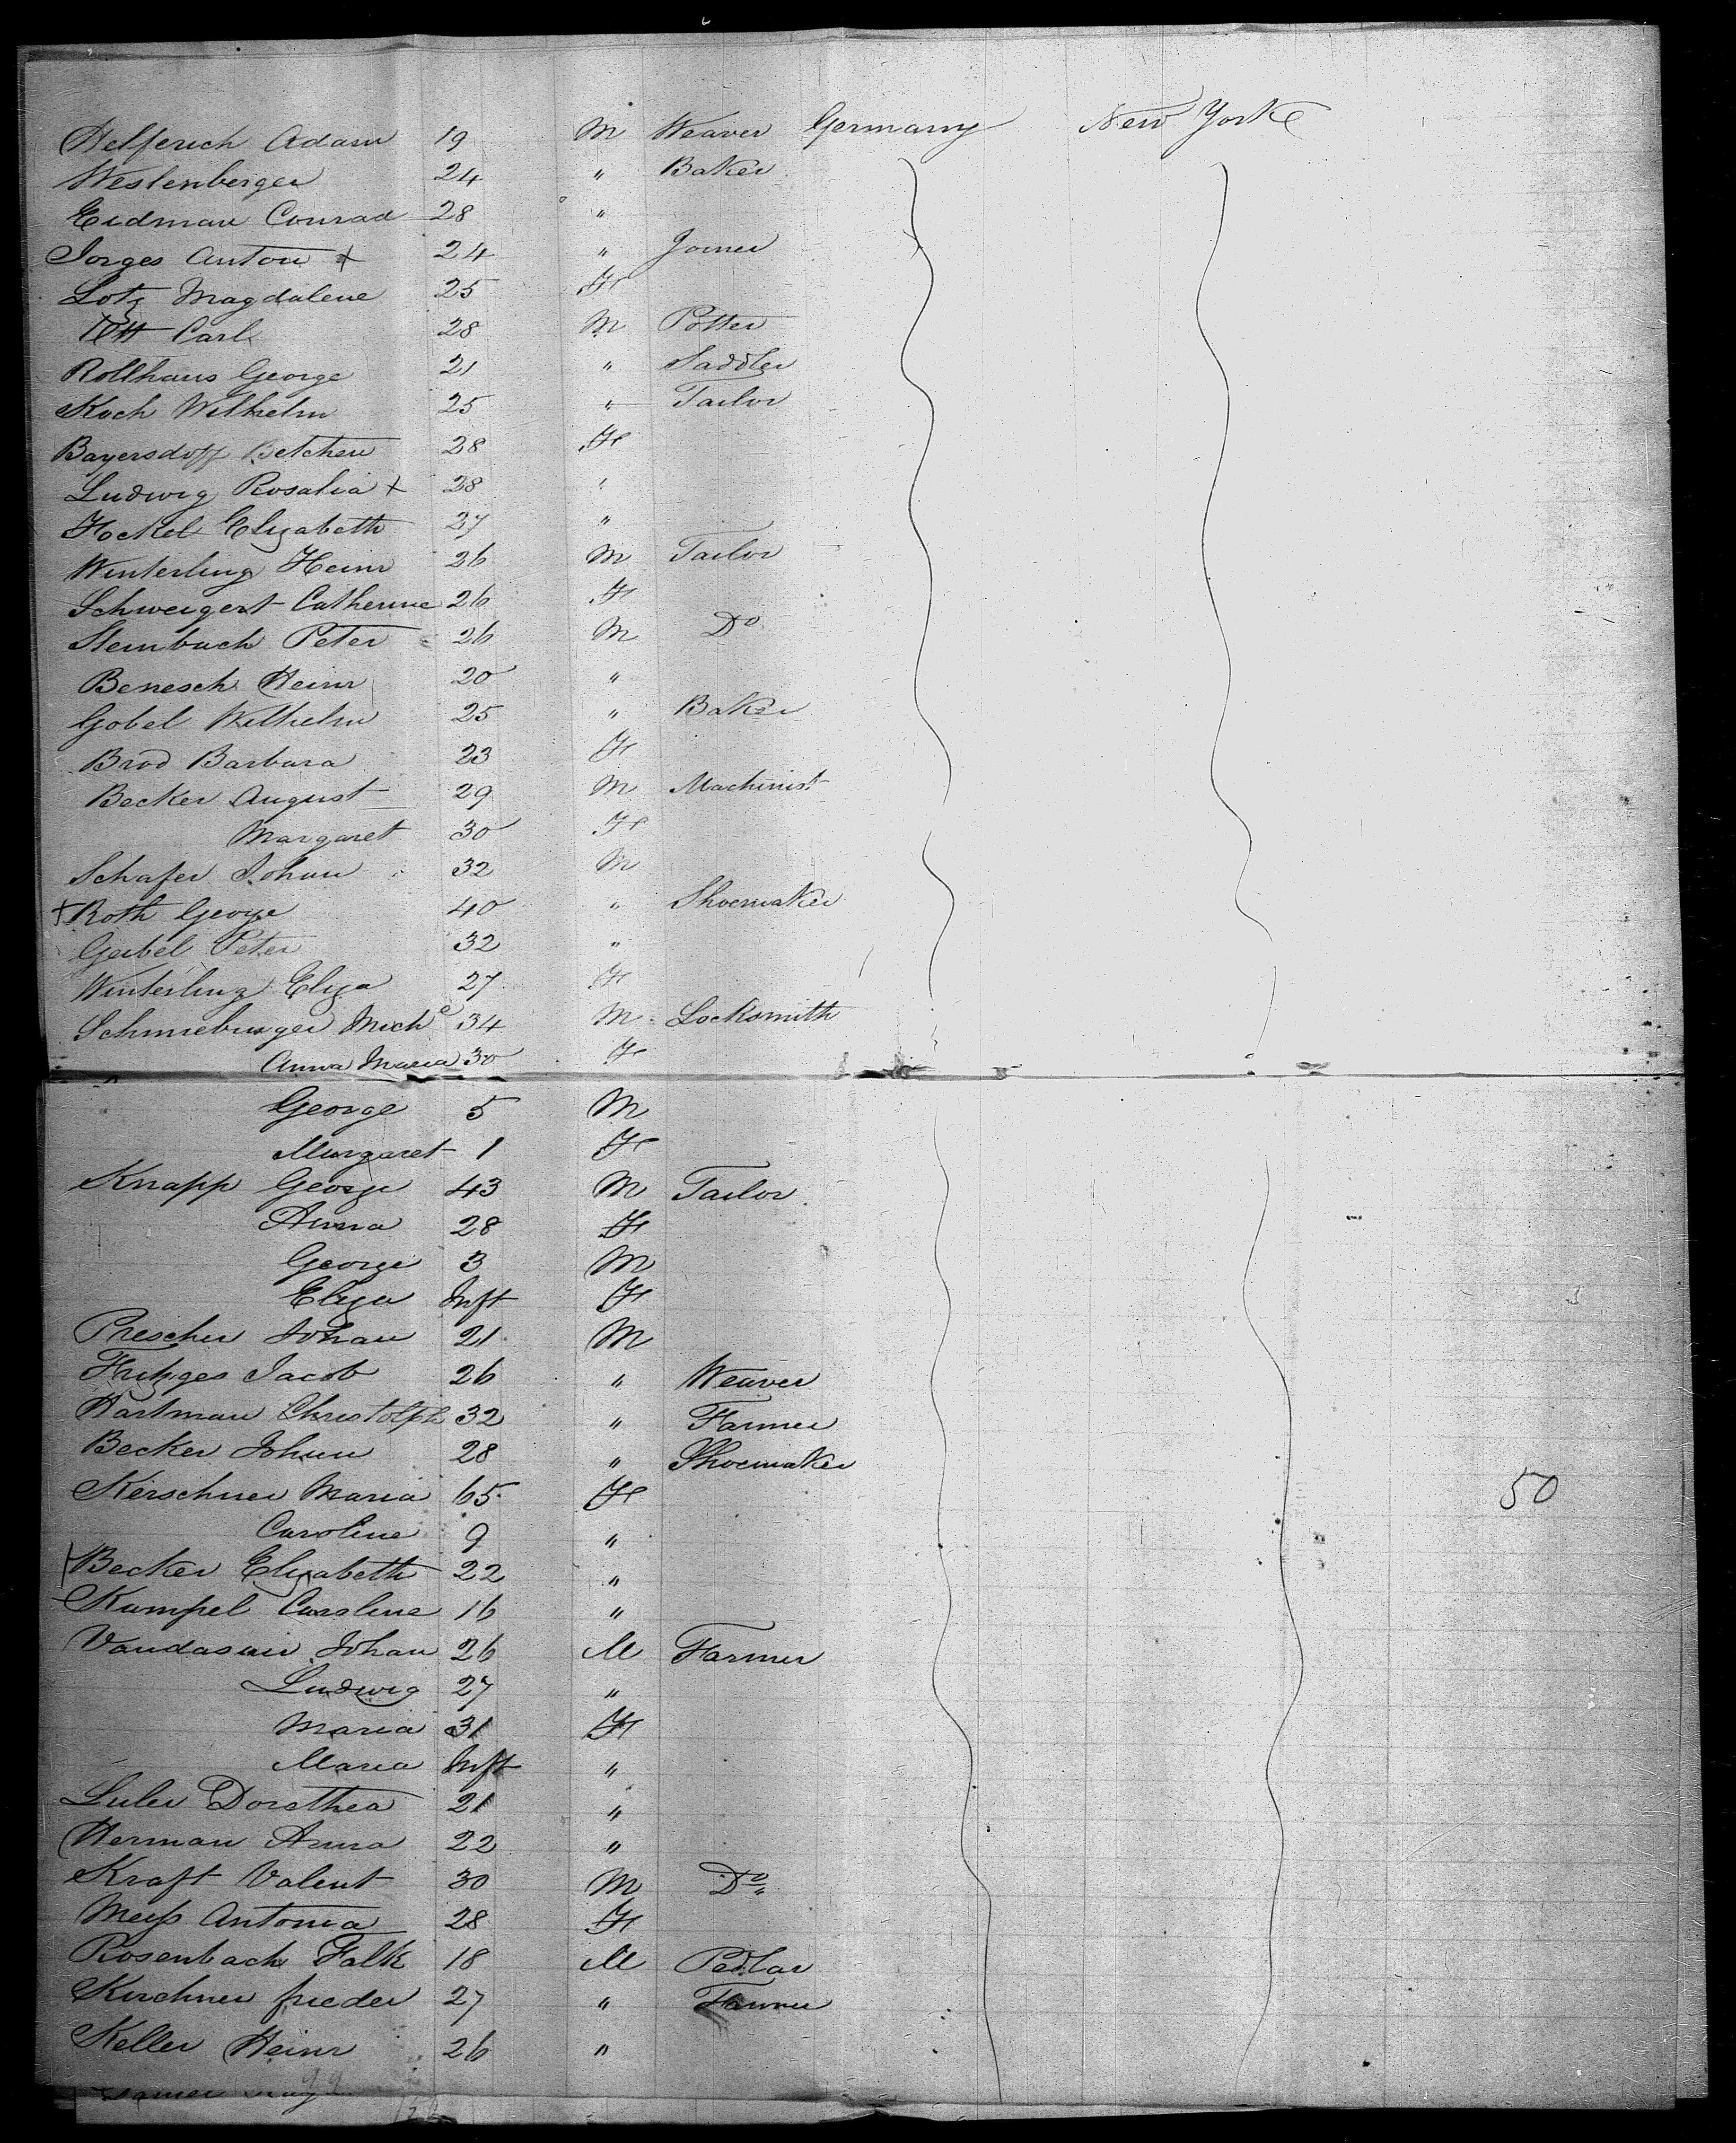 Helferich Adam 19 M Weaver Germany New York
Westenberger 24 " Baker
Eidman Conrad 28 "
Jorges Anton + 24 " Joiner
Lotz Magdalene 25 F
Ott Carl 28 M Potter
Rollhaus George 21 " Saddler
Koch Wilhelm 25 " Tailor
Bayersdoff Betchen 28 F
Ludwig Rosalia + 28 "
Hockel Elizabeth 27 "
Winterling Heinr 26 M Tailor
Schweigert Catherine 26 F
Steinbach Peter 26 M Do
Benesch Heinr 20 "
Gobel Wilhelm 25 " Baker
Brod Barbara 23 F
Becker August 29 M Machinist
Margaret 30 F
Schafer Johan 32 M
+ Roth George 40 " Shoemaker
Geibel Peter 32 "
Winterling Eliza 27 F
Schmieburger Michl 34 M Locksmith
Anna Maria 30 F
George 5 M
Margaret 1 F
Knapp George 43 M Tailor
Anna 28 F
George 3 M
Eliza Inft F
Prescher Johan 21 M
Fritzges Jacob 26 " Weaver
Hartman Christolph 32 " Farmer
Becker Johan 28 " Shoemaker
Kerschner Maria 65 F 50
Caroline 9 "
+ Becker Elizabeth 22 "
Kumpel Caroline 16 "
Johan 26 M Farmer
Ludwig 27 "
Maria 31 F
Maria Inft "
Luler Dorothea 21 "
Herman Anna 22 "
Kraft Valent 30 M Do "
Meiß Antonia 28 F
Rosenbach Falk 18 M Pedlar
Kirchner frieder 27 " Farmer
Keller Heinr 26 "